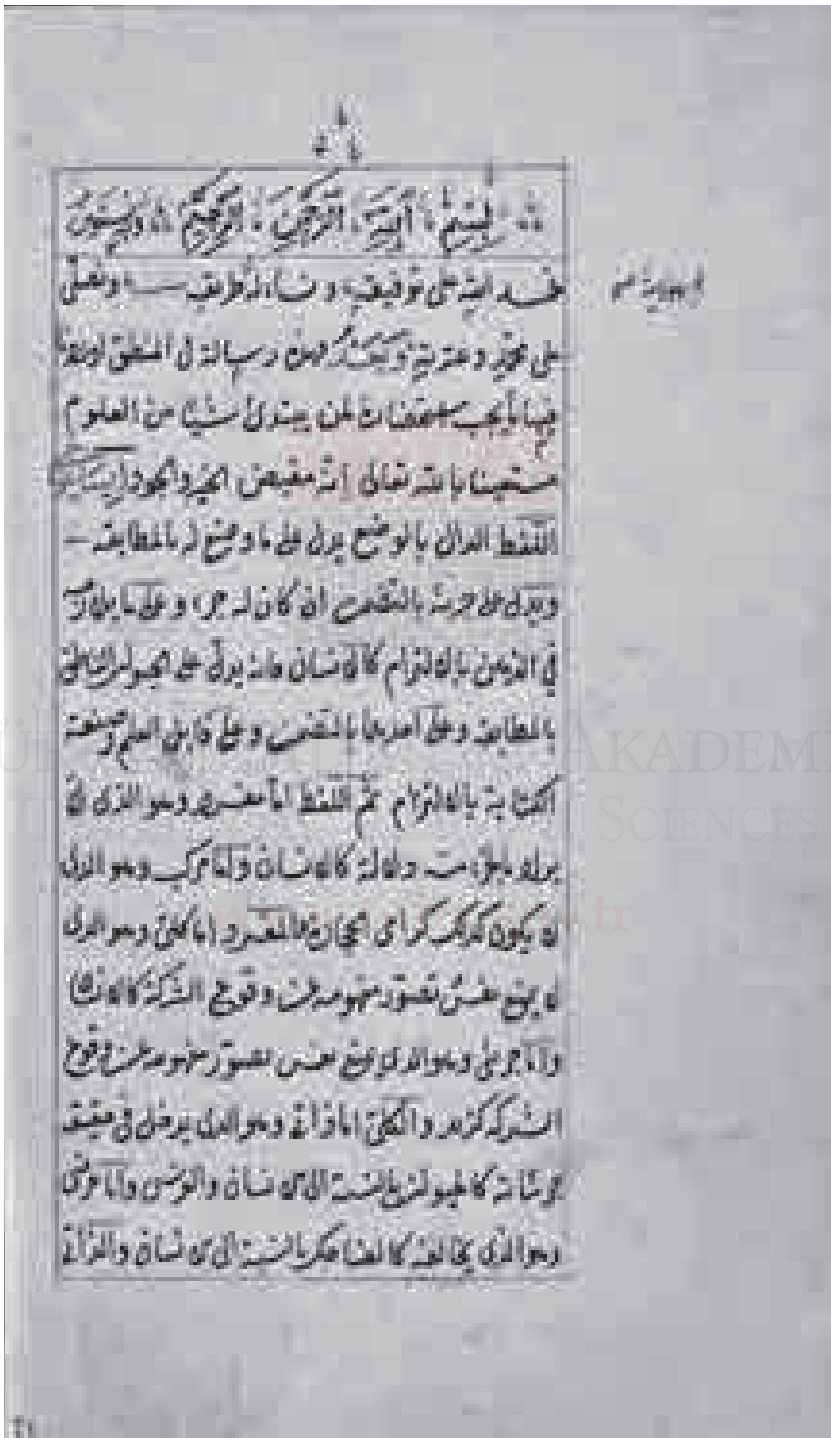 بسم الله الرحمن الرحيم وبه نستعين
نحمد الله على توفيقه و نسأله طريقه ونصلى
على محمد وعترته وبعد فهذه رسالة في المنطق اوردنا
فيها ما يجب استحضاره لمن يبتدئ شيئا من العلوم
مستعينا بالله تعالى انه مفيض الخير والجود ايساغوجى
اللفظ الدال بالوضع يدل على ما وضع له بالمطابقة
ويدل على جزئه بالتضمن ان كان له جزء وعلى ما يلازمه
في الذهن بالالتزام كالانسان فانه يدل على الحيوان الناطق
بالمطابقة وعلى احدهما بالتضمن وعلى قابل العلم وصنعة
الكتابة بالالتزام ثم اللفظ اما مفرد وهو الذى لا
يراد بالجزء منه دلالة كالانسان واما مركب وهو الذى
لا يكون كذلك كرامى الحجارة والمفرد اما كلى وهو الذى
لا يمنع نفس تصور مفهومه عن وقوع الشركة كالانسان
واما جزئى وهو الذى يمنع نفس تصور مفهومه عن وقوع
الشركة كزيد والكلى اما ذاتى وهو الذى يدخل فى حقيقة
جزئياته كالحيوان بالنسبة الى الانسان والفرس واما عرضى
وهو الذى يخالفه كالضاحك بالنسبة الى الانسان والذاتى
AKADEMİ
SCIENCES